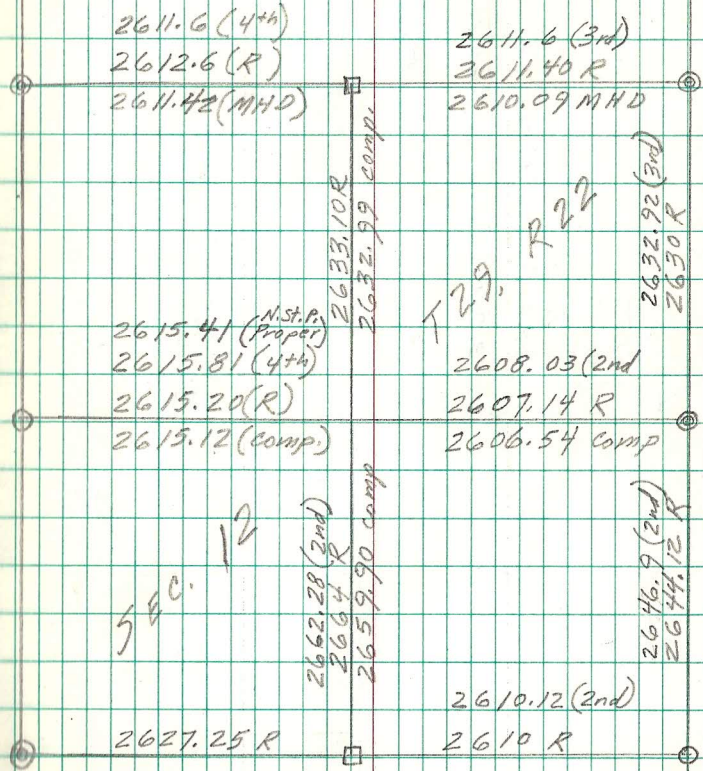 2611.6 (4th)
2612.6 (R)
2611.42 (MHD)
2611.6 (3rd)
2611.40 R
2610.09 MHD
2633.10 R
2632.99 comp.
T 29. R 22
2632.92 (3rd)
2630 R
2615.41 (N.St.P. Proper)
2615.81 (4th)
2615.20 (R)
2615.12 (comp.)
2608.03 (2nd
2607.14 R
2606.54 comp
SEC. 12
2662.28 (2nd)
2664 R
2659.90 comp
2646.9 (2nd)
2644.12 R
2610.12 (2nd)
2627.25 R
2610 R